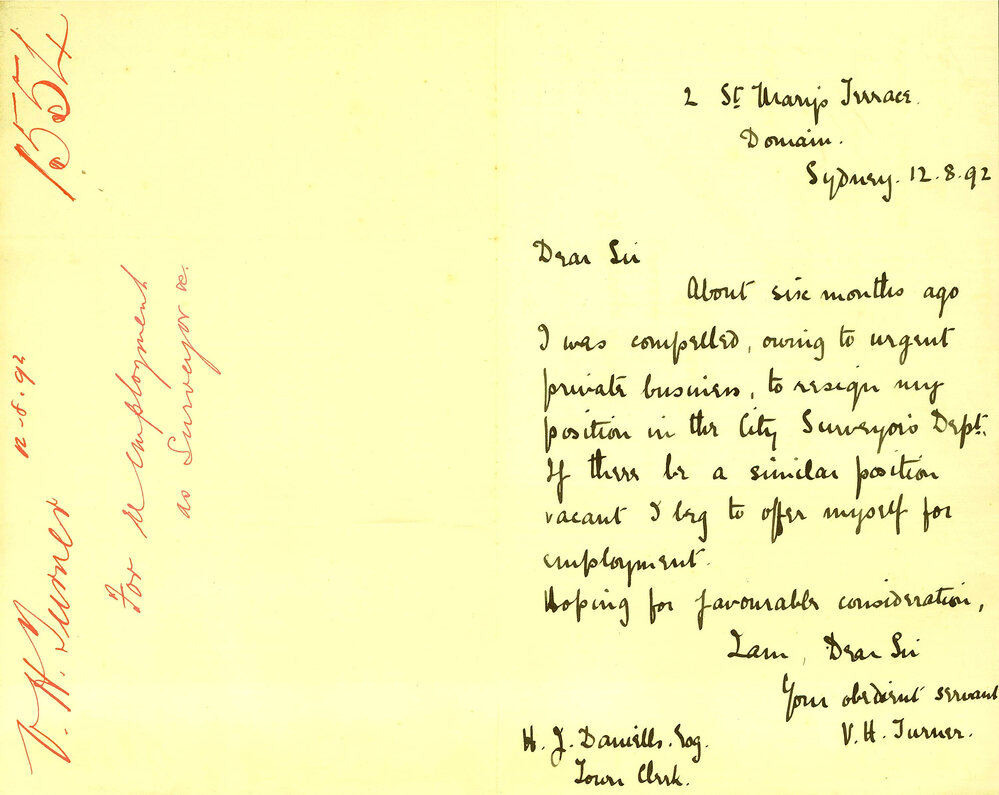 1554
12-8-92
V. H. Turner
For re employment
as Surveyor &c.
2 St. Mary's Terrace.
Domain.
Sydney. 12.8.92
Dear Sir
About six months ago
I was compelled, owing to urgent
private business, to resign my
position in the City Surveyor's Dept.
If there be a similar position
vacant I beg to offer myself for
employment.
Hoping for favourable consideration,
I am, Dear Sir
Your obedient servant
V. H. Turner.
H. J. Daniells. Esq.
Town Clerk.